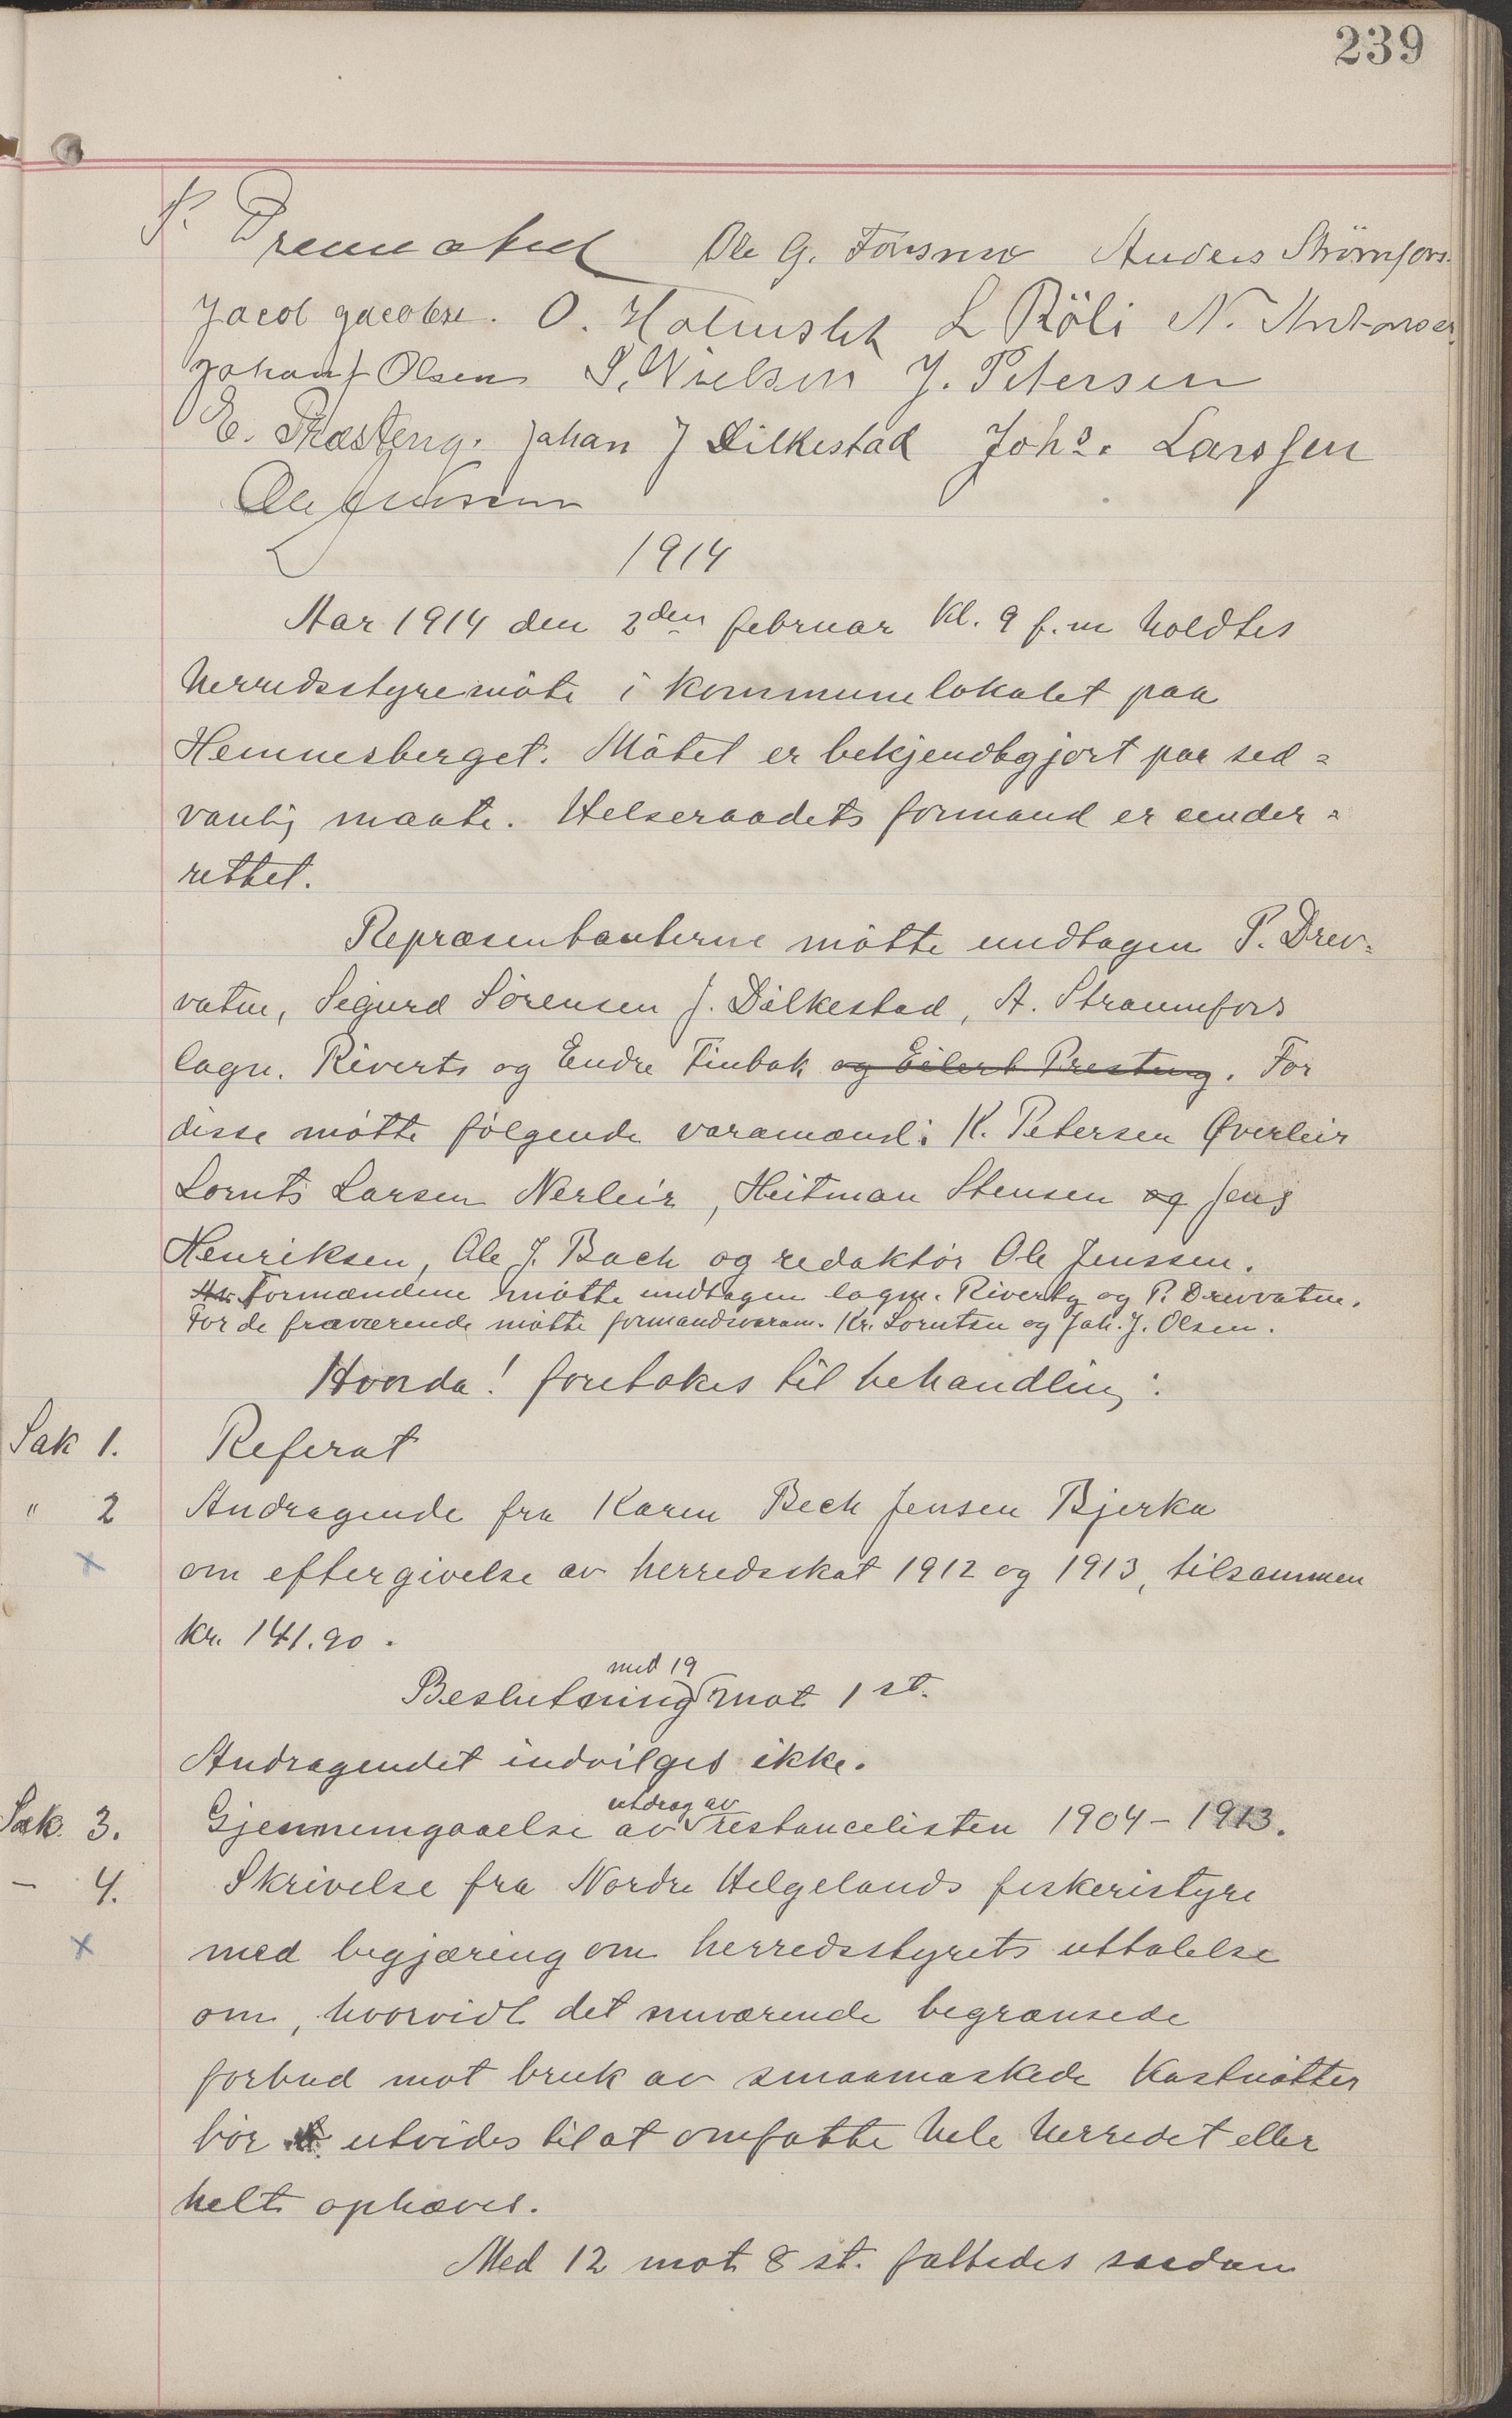 239
P. Ole G. Forsmo Anders Strömfors.
Jacob Jacobse. O. L Röli N. Antonsen
Johan J Olsen S. Nielsen J. Petersen
E. Præsteng. Johan J Dilkestad Johs. Larssen
Ole Jenssen
1914
Aar 1914 den 2den februar kl. 9 f.m holdtes
herredsstyremöte i kommunelokalet paa
Hemnesberget. Mötet er bekjendtgjort paa sed=
vanlig maate. Helseraadets formand er under=
rettet.
Repræsentanterne mötte undtagen P. Drev=
vatne, Sigurd Sörensen J. Dilkestad, A. Straumfors
lagn. Riverts og Endre Finbak og Eilert Presteng. For
disse mötte fölgende varamænd: K. Petersen Øverleir
Lornts Larsen Nerleir, Heitman Stensen og Jens
Henriksen, Ole J. Bach og redaktör Ole Jenssen.
Formændene mötte undtagen lagm. Riverts og P. Drevvatne.
For de fraværende mötte formandsvaram. Kr. Lorntsen og Joh. J. Olsen.
Hvorda! foretokes til behandling:
Sak 1. Referat
" 2 Andragende fra Karen Bech Jensen Bjerka
x om eftergivelse av herredsskat 1912 og 1913, tilsammen
kr. 141.90.
med 19
Beslutning mot 1 st.
Andragendet indvilges ikke.
utdrag av
Sak. 3. Gjennemgaaelse av restancelisten 1904 - 1913.
- 4. Skrivelse fra Nordre Helgelands fiskeristyre
x med begjæring om herredsstyrets uttalelse
om, hvorvidt det nuværende begrænsede
forbud mot bruk av smaamaskede kastnötter
bör utvides til at omfatte hele herredet eller
helt ophæves.
Med 12 mot 8 st. fattedes saadan